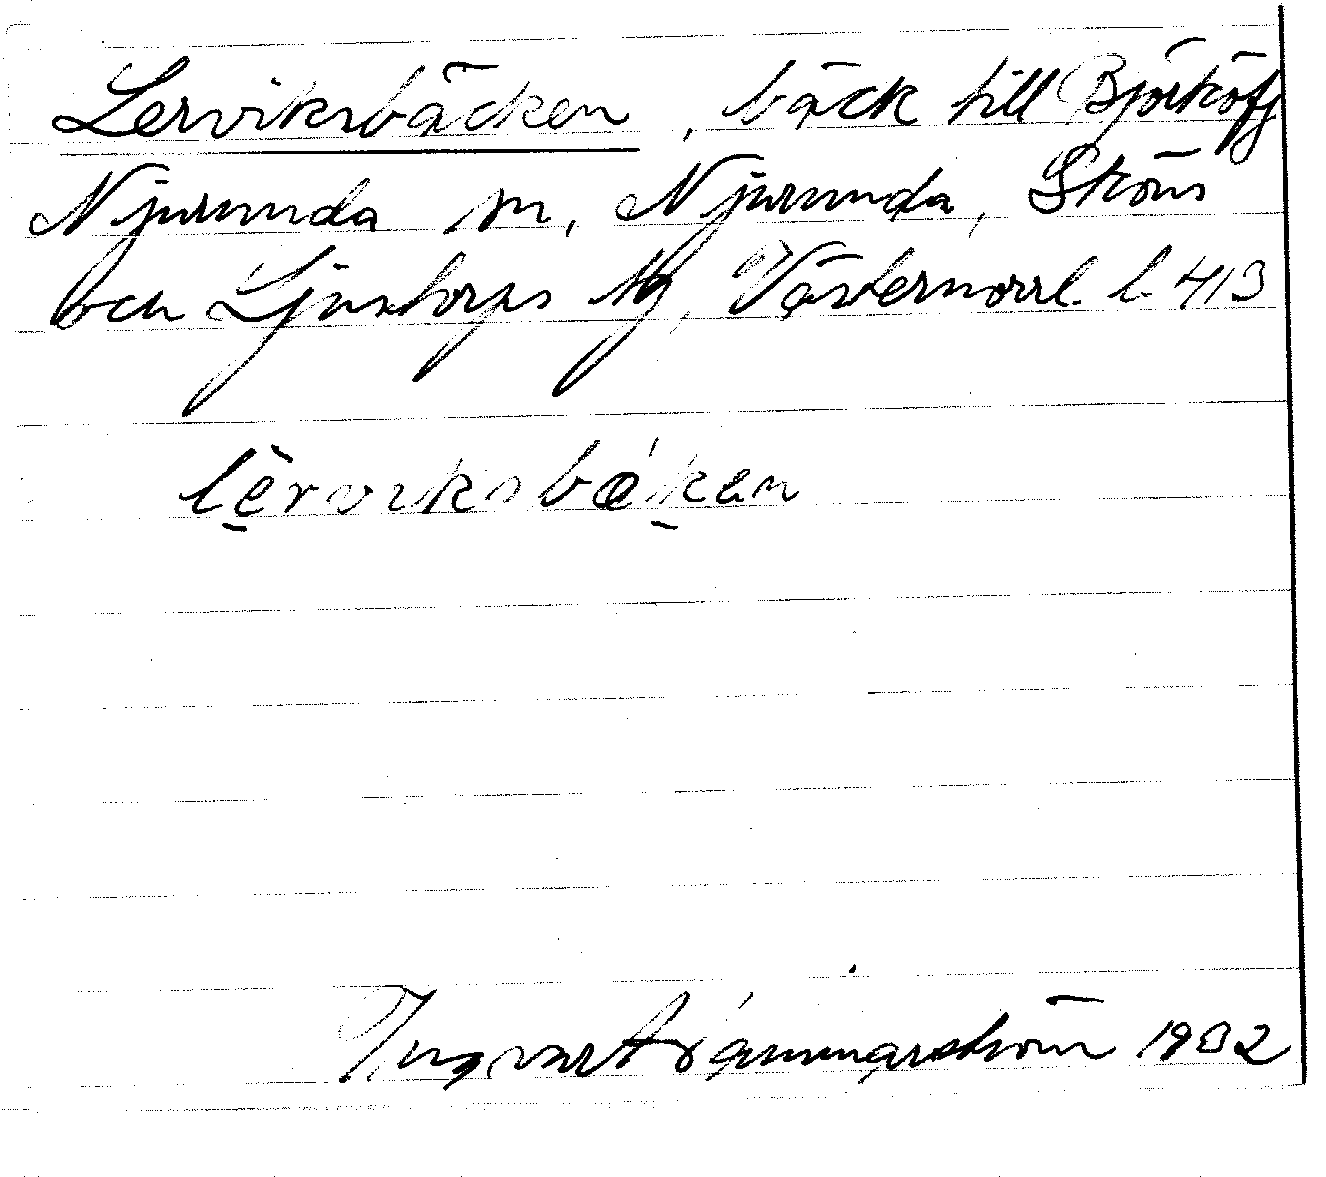 Lerviksbäcken, bäck till Björköfj
Njurunda sn, Njurunda, Sköns
och Ljustorps tlg, Västernorrl. l. 413
lèrviksbákən
Ingvar Hammarström 1932